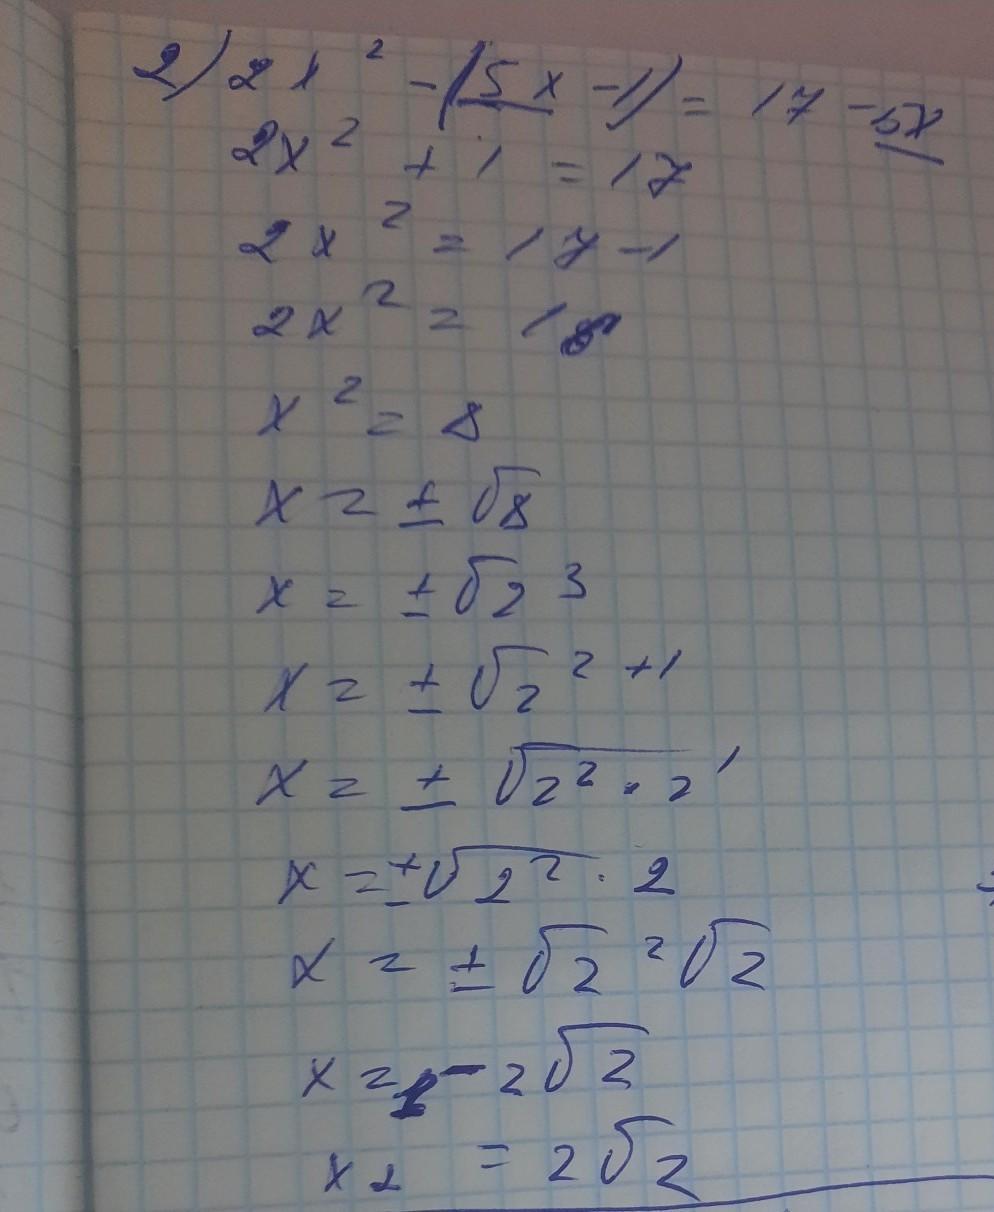 2) 2x² - (5x - 1) = 17 - 5x
2x² + 1 = 17
2x² = 17 - 1
2x² = 16
x² = 8
x = ± √8
x = ± √2³
x = ± √2²⁺¹
x = ± √2² · 2¹
x = ± √2² · 2
x = ± √2² √2
x₁ = - 2√2
x₂ = 2√2